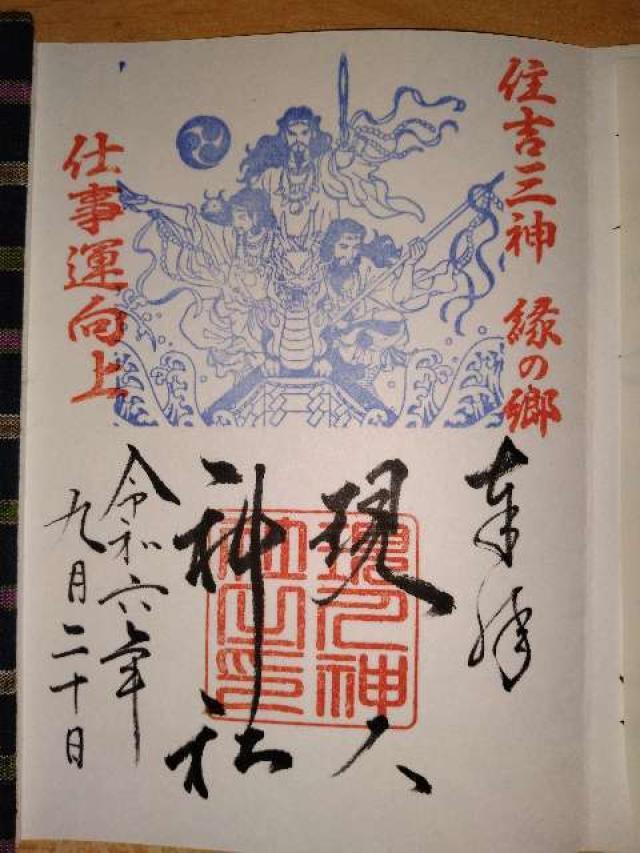 住吉三神 縁の郷
仕事運向上
奉拝
現人
神社
現人神
社之印
令和六年
九月二十日